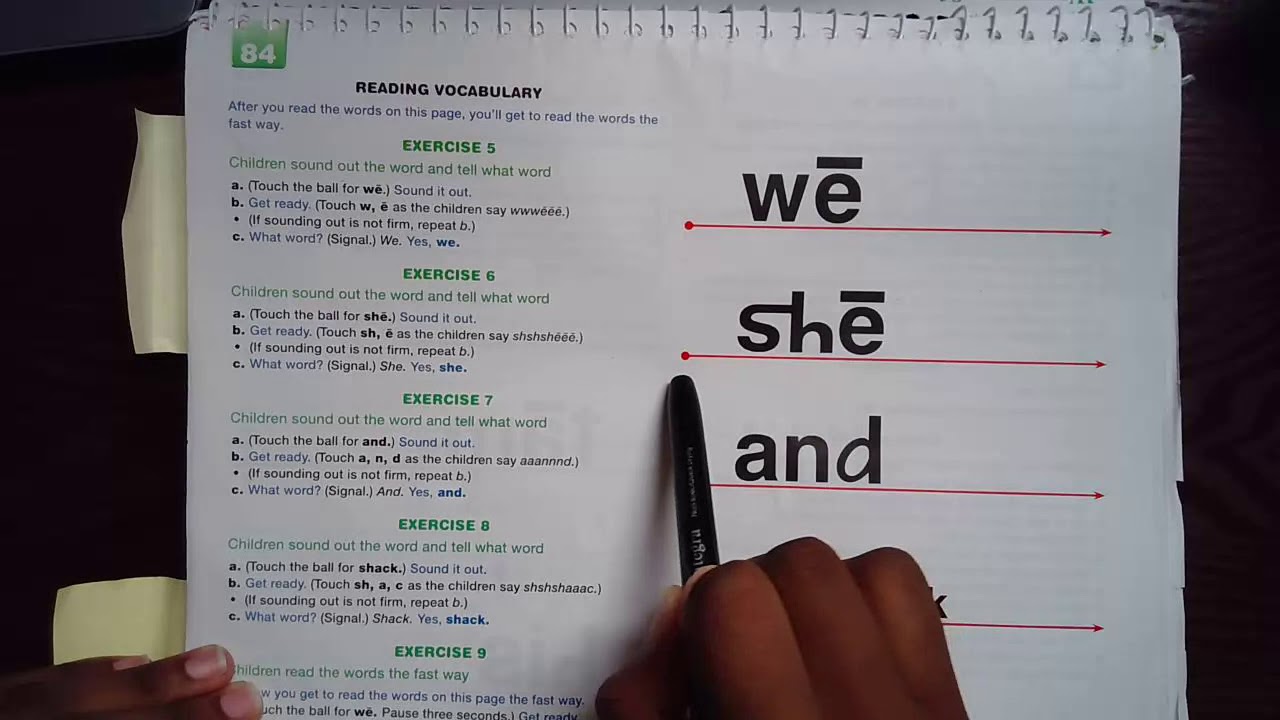 84
READING VOCABULARY
After you read the words on this page, you'll get to read the words the
fast way.
EXERCISE 5
Children sound out the word and tell what word
a. (Touch the ball for wē.) Sound it out.
b. Get ready. (Touch w, ē as the children say wwwēēē.)
• (If sounding out is not firm, repeat b.)
c. What word? (Signal.) We. Yes, we.
EXERCISE 6
Children sound out the word and tell what word
a. (Touch the ball for shē.) Sound it out.
b. Get ready. (Touch sh, ē as the children say shshshēēē.)
• (If sounding out is not firm, repeat b.)
c. What word? (Signal.) She. Yes, she.
EXERCISE 7
Children sound out the word and tell what word
a. (Touch the ball for and.) Sound it out.
b. Get ready. (Touch a, n, d as the children say aaannnd.)
• (If sounding out is not firm, repeat b.)
c. What word? (Signal.) And. Yes, and.
EXERCISE 8
Children sound out the word and tell what word
a. (Touch the ball for shack.) Sound it out.
b. Get ready. (Touch sh, a, c as the children say shshshaaac.)
• (If sounding out is not firm, repeat b.)
c. What word? (Signal.) Shack. Yes, shack.
EXERCISE 9
Children read the words the fast way
you get to read the words on this page the fast way.
the ball for wē. Pause three seconds.) Get ready.
wē
shē
and
k